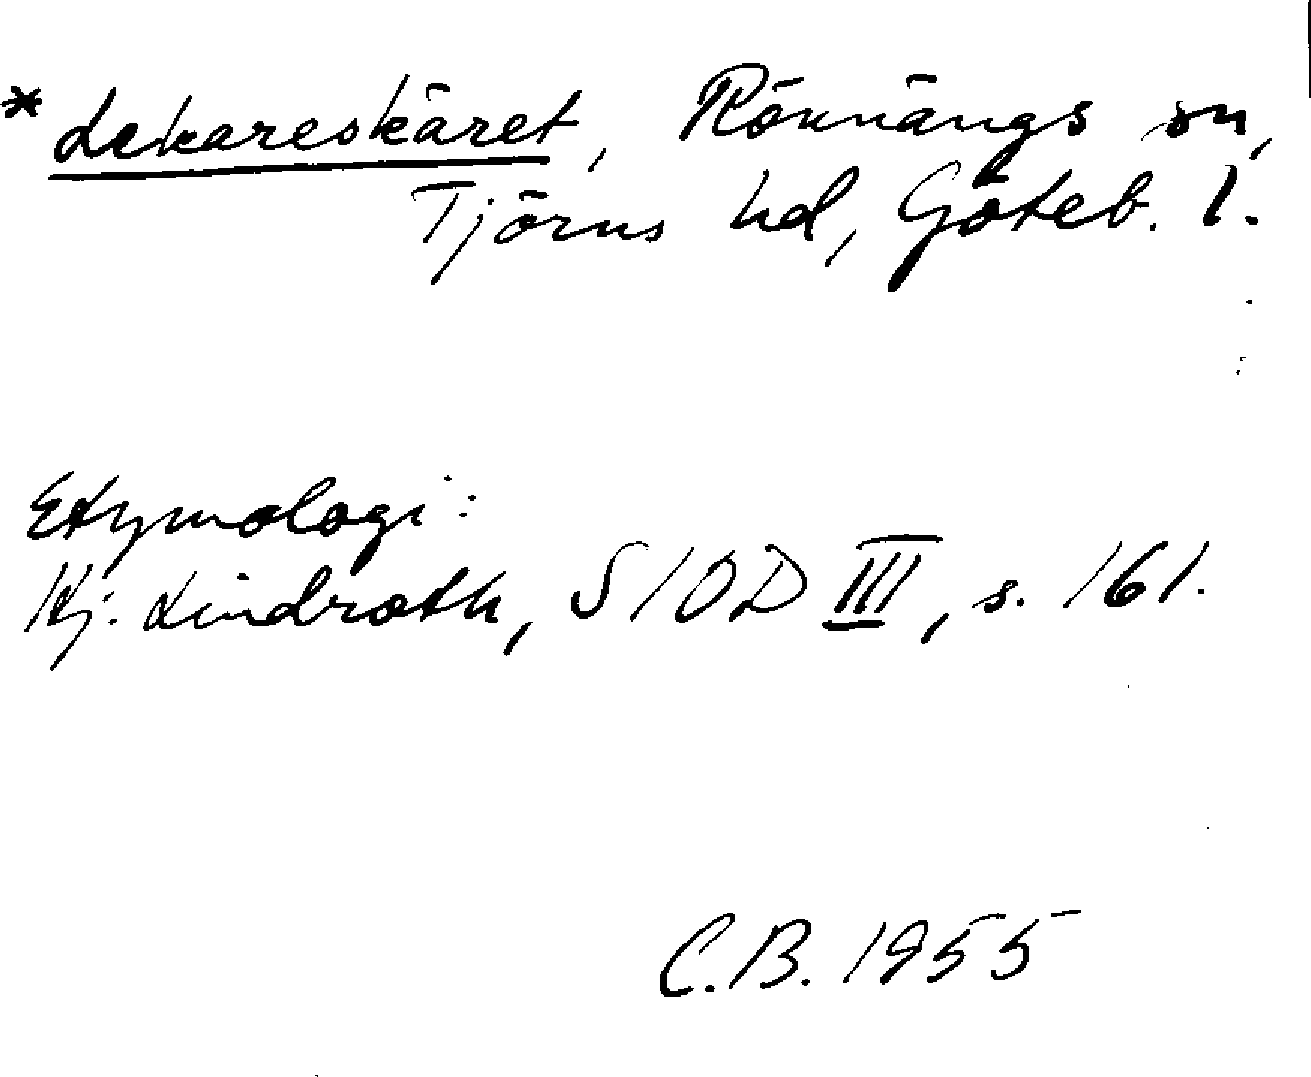 * Lekareskäret, Rönnängs sn,
Tjörns hd, Göteb. l.
Etymologi:
Hj. Lindroth, SIOD III, s. 161.
C.B. 1955